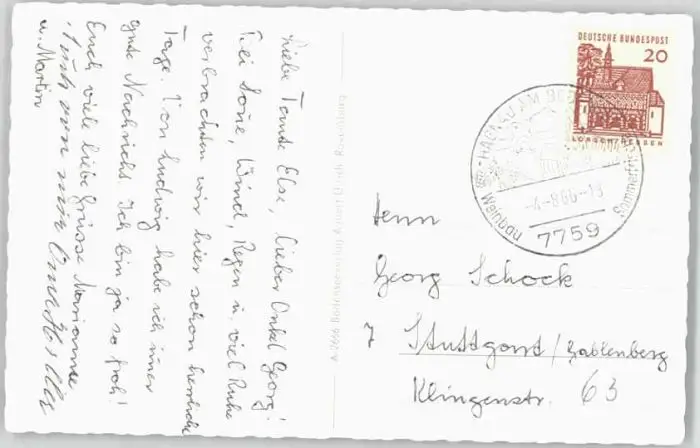 Liebe Tante Else, lieber Onkel Georg!
Bei Sonne, Wind, Regen u. viel Ruhe
verbrachten wir hier schon herrliche
Tage. Von Ludwig habe ich immer
gute Nachricht. Ich bin ja so froh!
Euch viele liebe Grüsse Marianne
u. Martin
Auch von mir
DEUTSCHE BUNDESPOST
20
LORSCH HESSEN
HAGNAU AM
Weinbau
Sommerfrische
-4.-8.66-13
7759
Herrn
Georg Schock
7 Stuttgart/Gablenberg
Klingenstr. 63